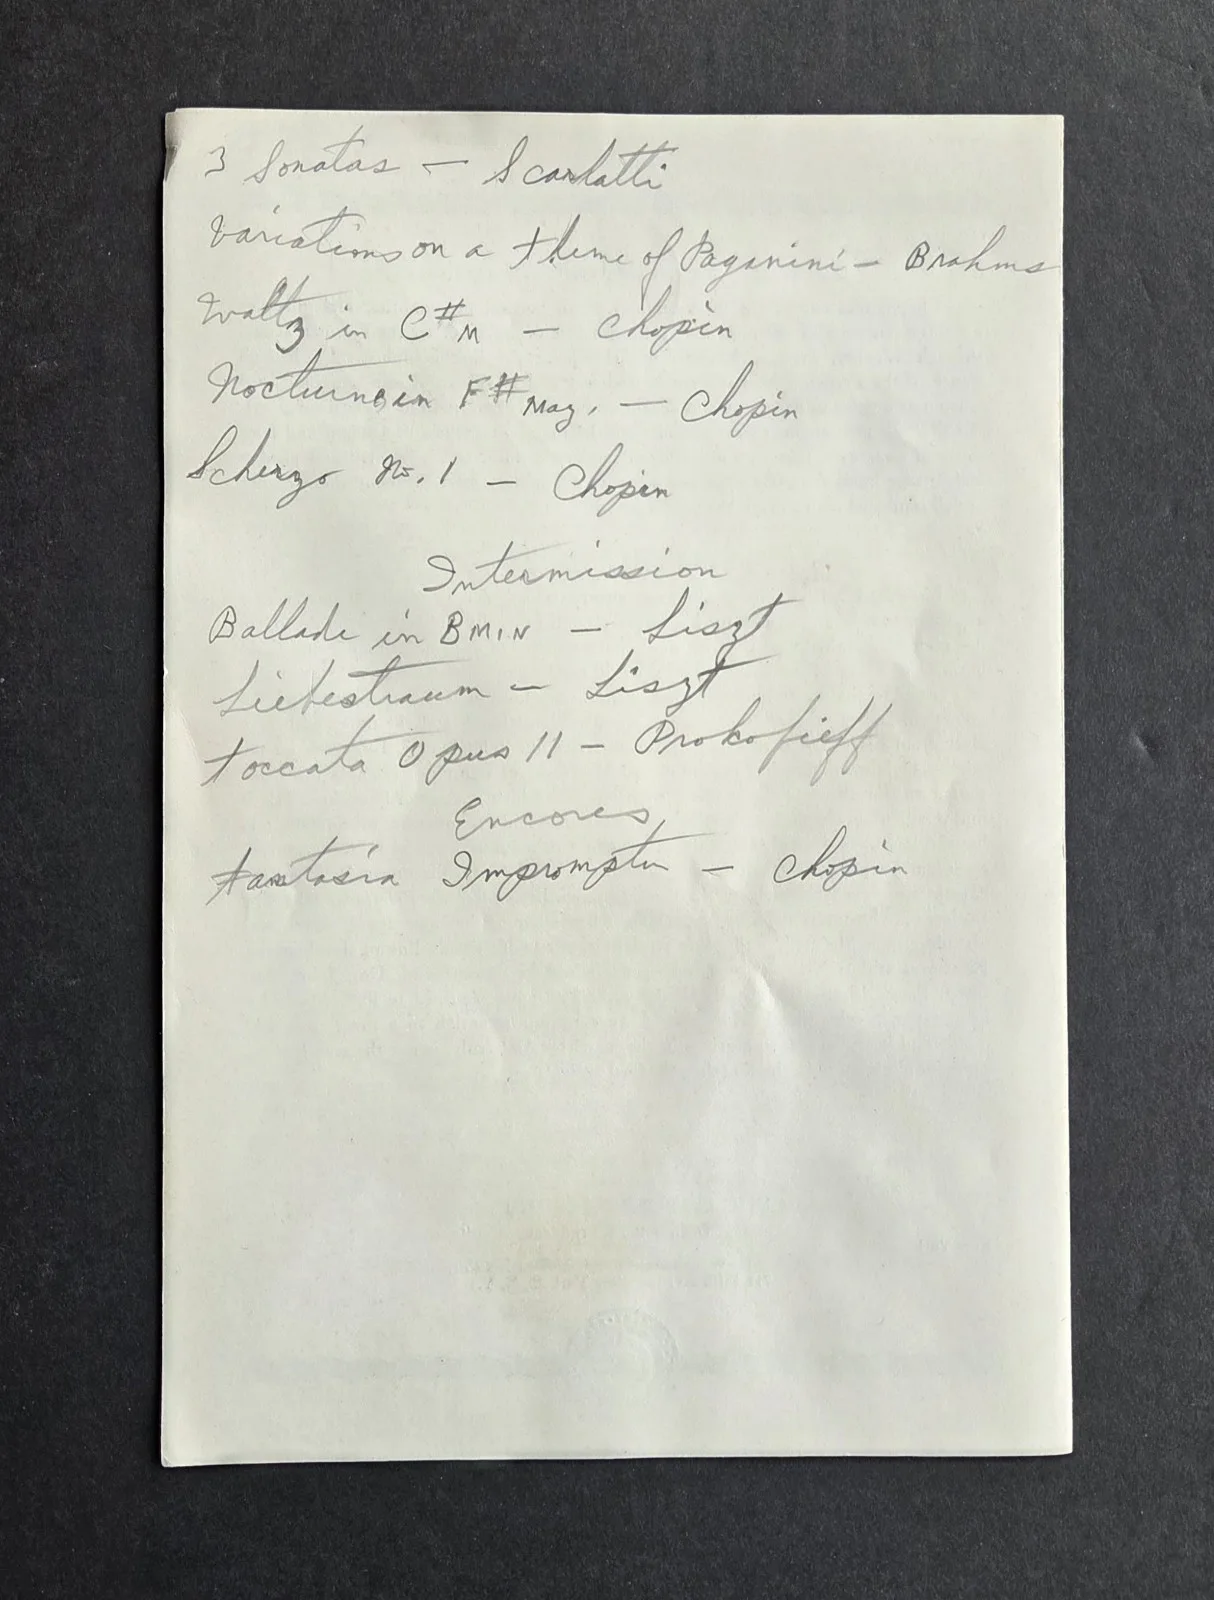 3 Sonatas — Scarlatti
Variations on a theme of Paganini — Brahms
Waltz in C# M — Chopin
Nocturne in F# Maj. — Chopin
Scherzo No. 1 — Chopin
Intermission
Ballade in B MIN — Liszt
Liebestraum — Liszt
Toccata Opus 11 — Prokofieff
Encores
Fantasia Impromptu — Chopin